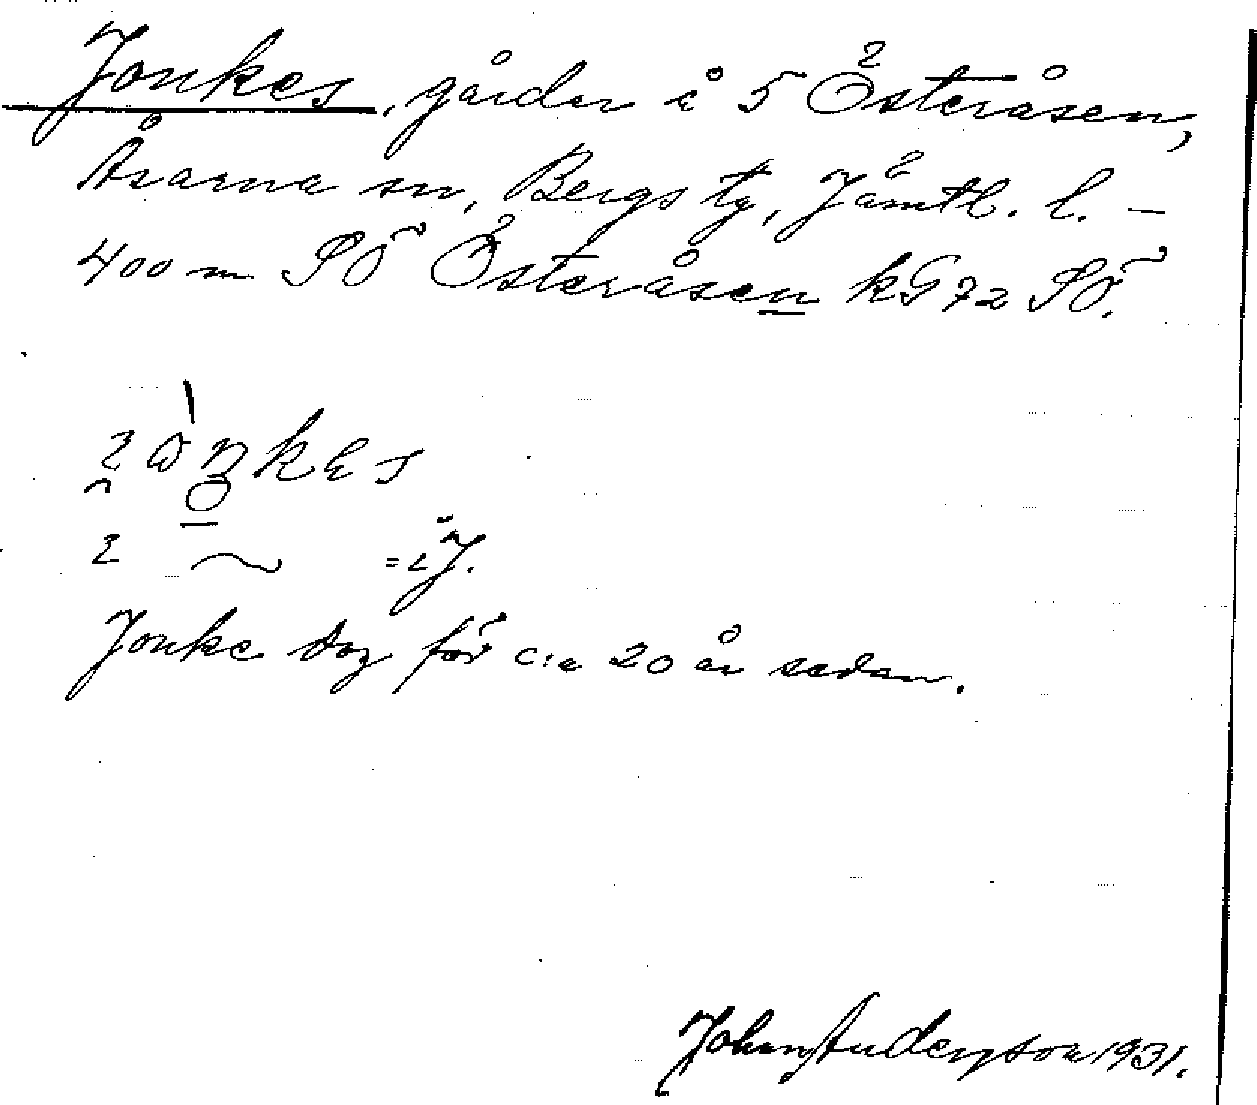 Jonkes, gårdar i 5 Österåsen,
Åsarna sn, Bergs tg, Jämtl. l. –
400 m SÖ Österåsen kG 72 SÖ.
Jonke dog för c:a 20 år sedan.
1931.